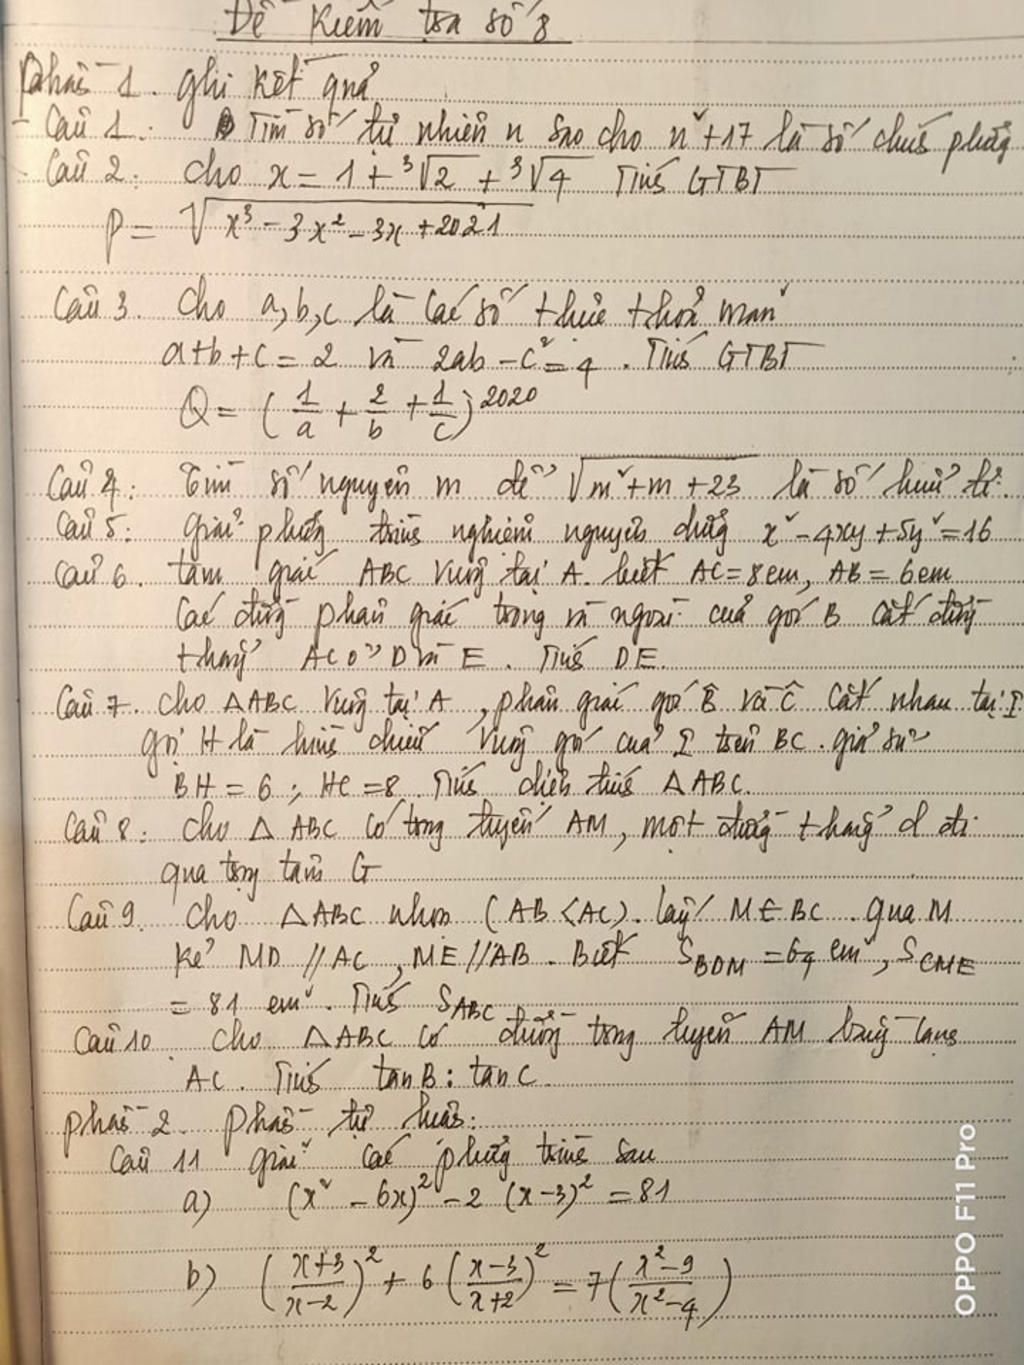 Đề kiểm tra số 8
Phần 1. Ghi kết quả
Câu 1: Tìm số tự nhiên n sao cho n² + 17 là số chính phương
Câu 2: Cho x = 1 + ³√2 + ³√4 Tính GTBT
P = √(x³ - 3x² - 3x + 2021)
Câu 3. Cho a, b, c là các số thực thoả mãn
a + b + c = 2 và 2ab - c² = 4. Tính GTBT
Q = (1/a + 2/b + 1/c)²⁰²⁰
Câu 4: Tìm số nguyên m để √(m² + m + 23) là số hữu tỉ.
Câu 5: Giải phương trình nghiệm nguyên dương x² - 4xy + 5y² = 16
Câu 6. tam giác ABC vuông tại A. biết AC = 8cm, AB = 6cm
Các đường phân giác trong và ngoài của góc B cắt đường
thẳng AC ở D và E. Tính DE.
Câu 7. Cho △ABC vuông tại A, phân giác góc B̂ và Ĉ cắt nhau tại I
gọi H là hình chiếu vuông góc của I trên BC. giả sử
BH = 6; HC = 8. Tính diện tích △ABC.
Câu 8: Cho △ABC có trung tuyến AM, một đường thẳng d đi
qua trọng tâm G
Câu 9. Cho △ABC nhọn (AB < AC). lấy M ∈ BC. Qua M
kẻ MD // AC, ME // AB. Biết S_BDM = 64 cm², S_CME
= 81 cm². Tính S_ABC
Câu 10. Cho △ABC có đường trung tuyến AM bằng cạnh
AC. Tính tanB : tanC.
Phần 2. Phần tự luận:
Câu 11 giải các phương trình sau
a) (x² - 6x)² - 2(x-3)² = 81
b) ((x+3)/(x-2))² + 6((x-3)/(x+2))² = 7((x²-9)/(x²-4))
OPPO F11 Pro